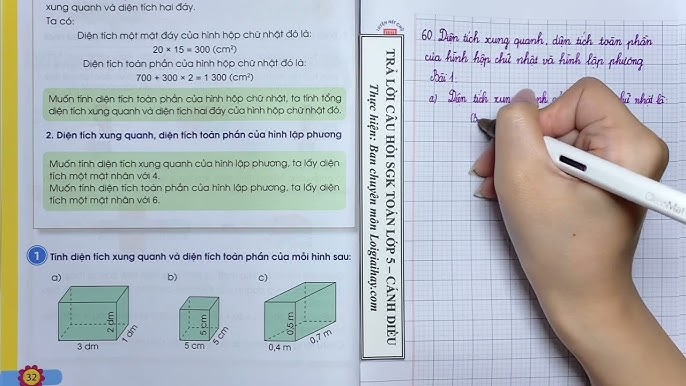 xung quanh và diện tích hai đáy.
Ta có:
Diện tích một mặt đáy của hình hộp chữ nhật đó là:
20 × 15 = 300 (cm²)
Diện tích toàn phần của hình hộp chữ nhật đó là:
700 + 300 × 2 = 1 300 (cm²)
Muốn tính diện tích toàn phần của hình hộp chữ nhật, ta tính tổng
diện tích xung quanh và diện tích hai đáy của hình hộp chữ nhật đó.
2. Diện tích xung quanh, diện tích toàn phần của hình lập phương
Muốn tính diện tích xung quanh của hình lập phương, ta lấy diện
tích một mặt nhân với 4.
Muốn tính diện tích toàn phần của hình lập phương, ta lấy diện
tích một mặt nhân với 6.
1 Tính diện tích xung quanh và diện tích toàn phần của mỗi hình sau:
a) b) c)
2 dm
1 dm
3 dm
5 cm
5 cm
5 cm
0,5 m
0,7 m
0,4 m
32
TRẢ LỜI CÂU HỎI SGK TOÁN LỚP 5 – CÁNH DIỀU
Thực hiện: Ban chuyên môn Loigiaihay.com
60. Diện tích xung quanh, diện tích toàn phần
của hình hộp chữ nhật và hình lập phương
Bài 1.
a) Diện tích xung nhật là